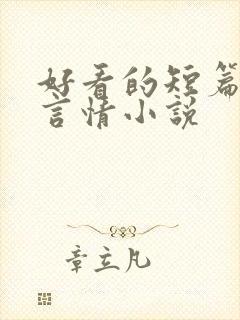 好看的短篇
言情小说
章立凡